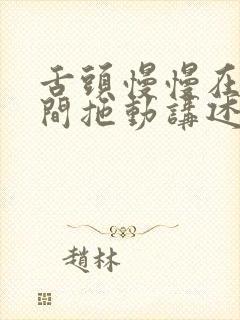 舌頭慢慢在
間拖動講述
趙林